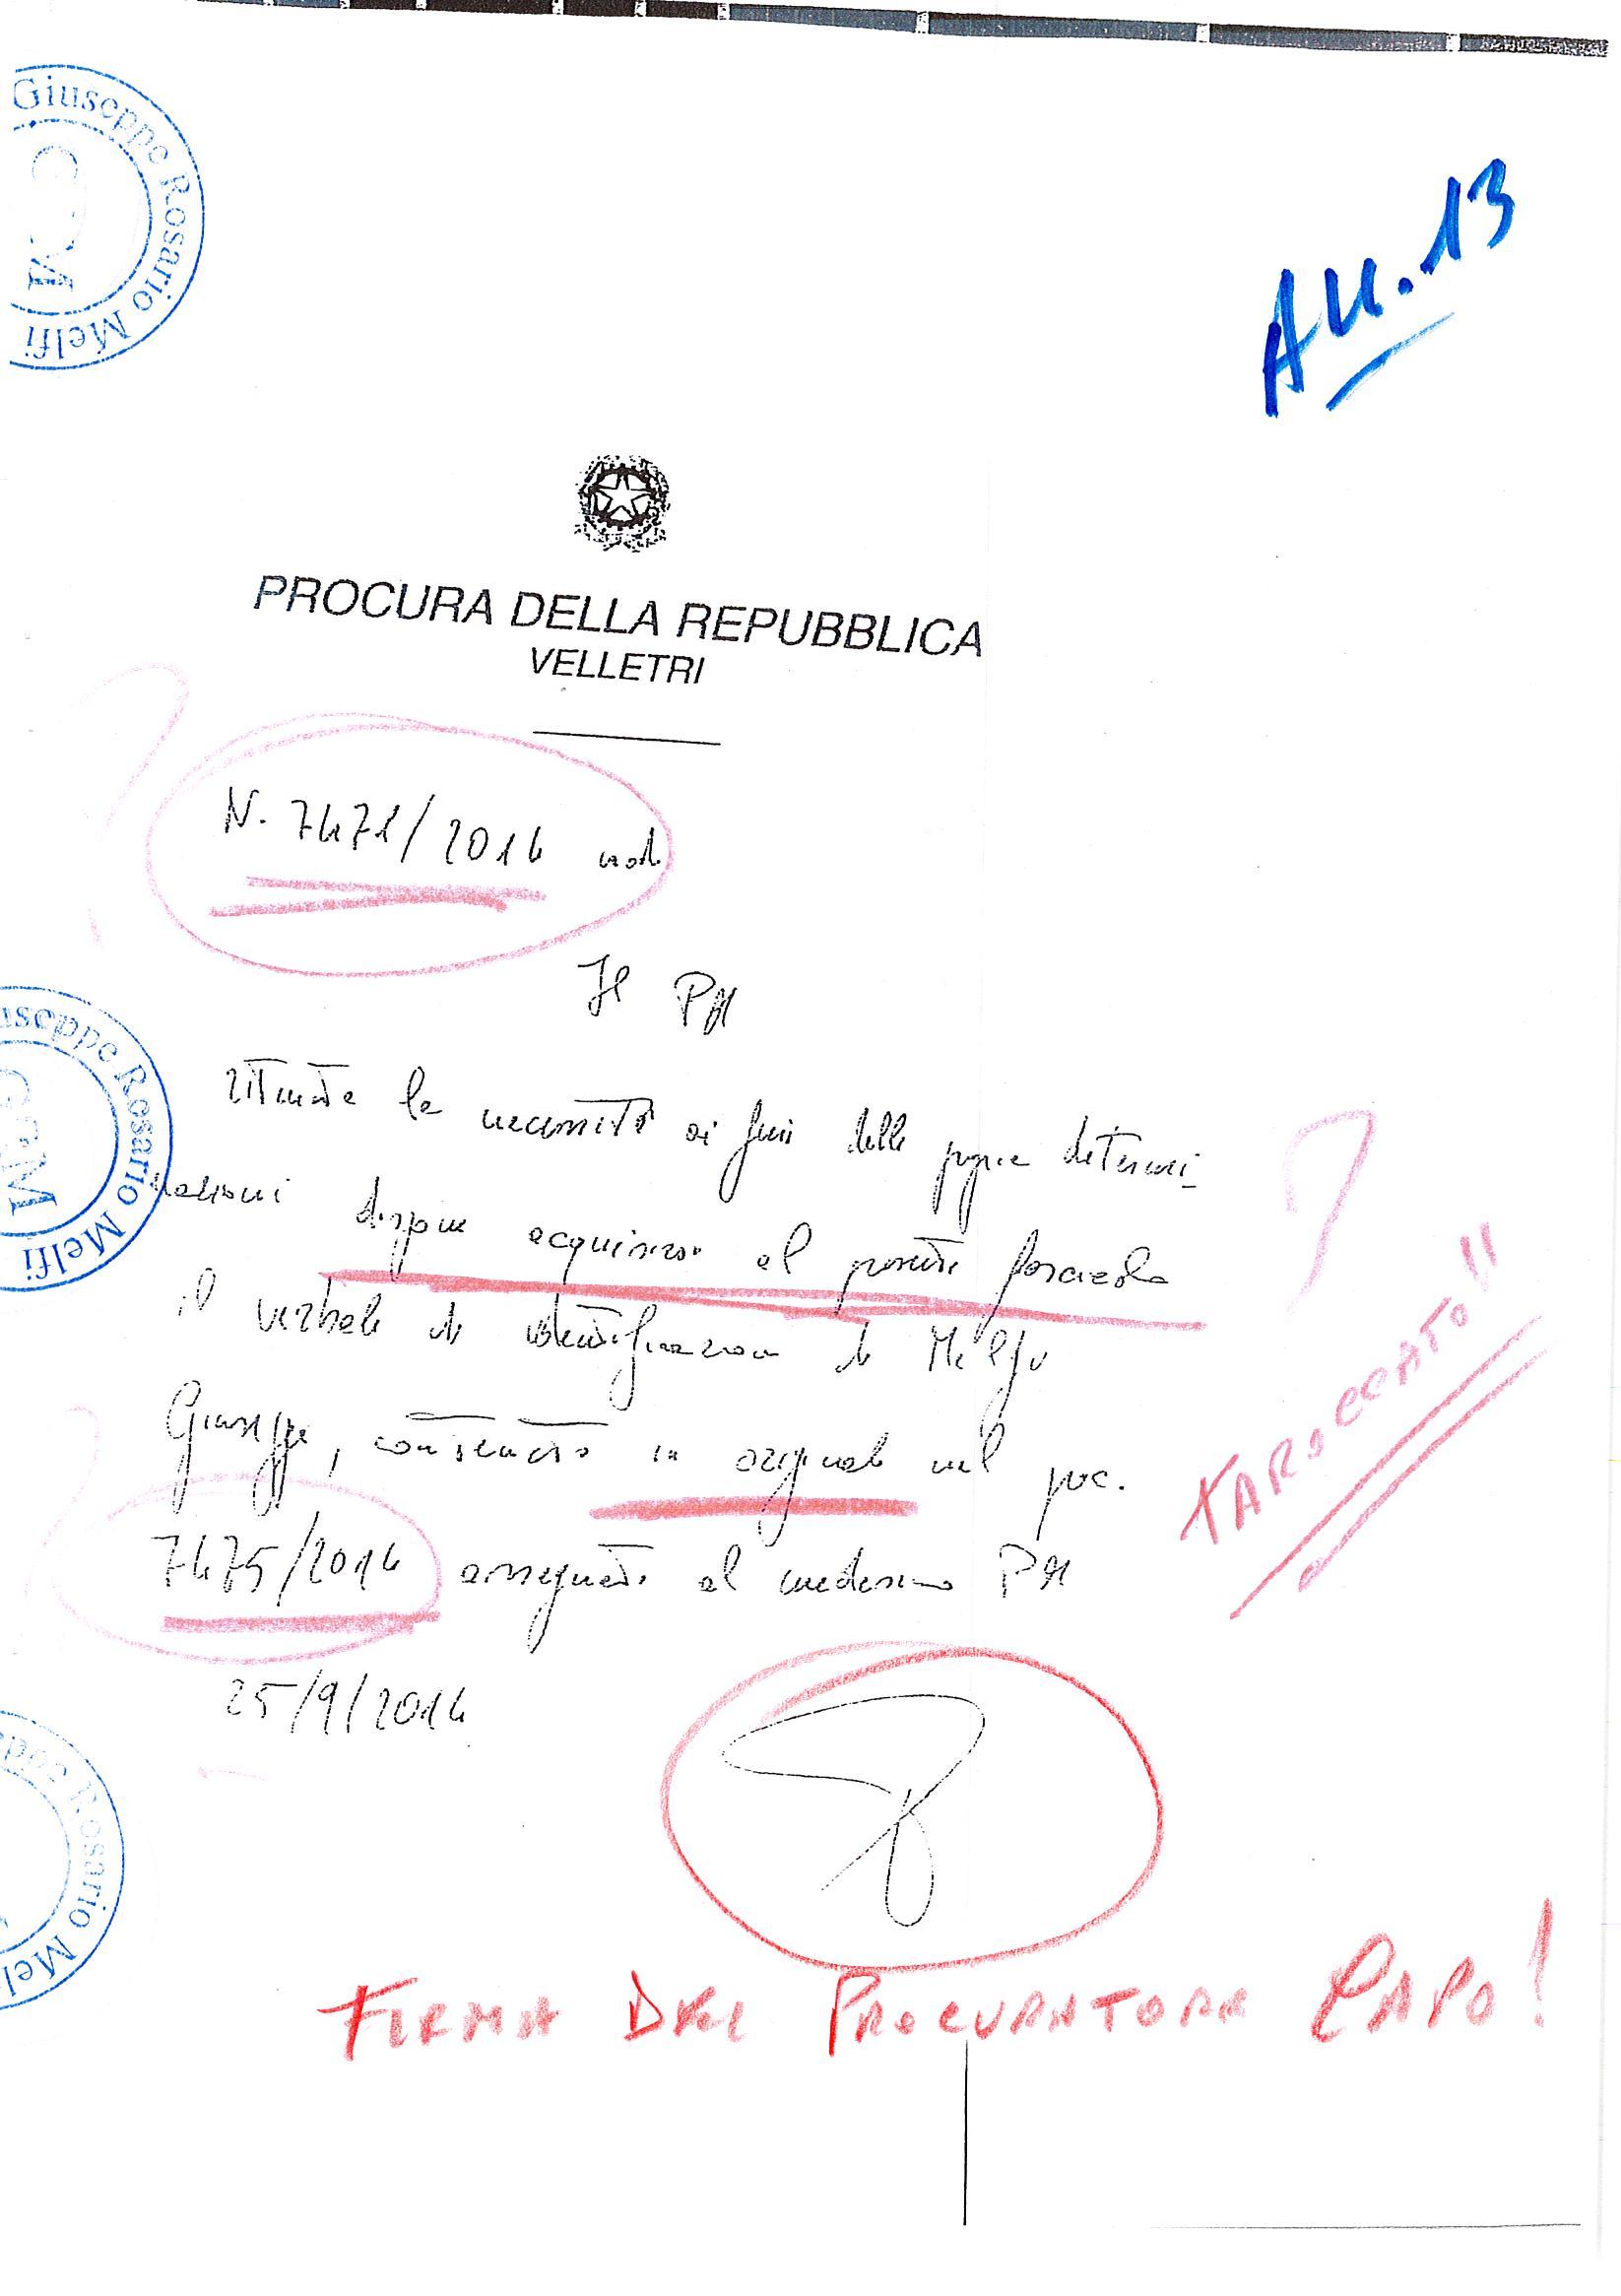 Giuseppe Rosario Melfi
GRM
All. 13
PROCURA DELLA REPUBBLICA
VELLETRI
N. 7471/2014 mod
Il PM
ritenuta la necessità ai fini delle proprie determi
nazioni dispone acquisizione al presente fascicolo
il verbale di identificazione di Melfi
Giuseppe, contenuto in originale nel proc.
7475/2014 assegnato al medesimo PM
25/9/2014
TAROCCATO!!
iuseppe Rosario Melfi
GRM
ppe Rosario Mel
FIRMA DEL PROCURATORE CAPO!